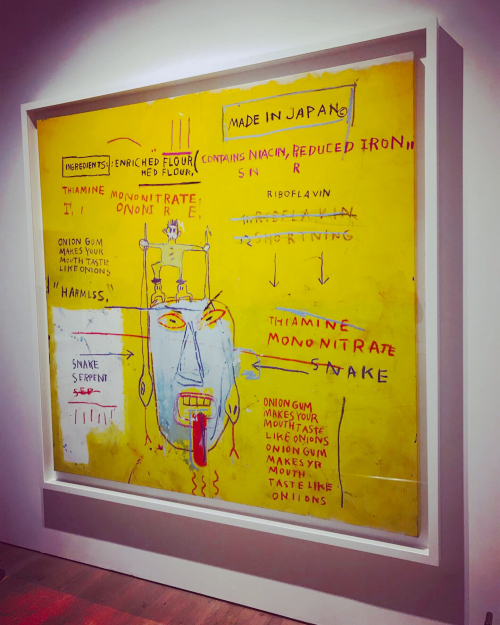 MADE IN JAPAN©
INGREDIENTS: ENRICHED FLOUR (CONTAINS NIACIN, REDUCED IRON"
HED FLOUR. S N R
THIAMINE MONONITRATE:
T, I ONONI R E.
RIBOFLAVIN
ONION GUM
MAKES YOUR
MOUTH TASTE
LIKE ONIONS
"HARMLSS."
SNAKE
SERPENT
SEP
THIAMINE
MONONITRATE
SNAKE
ONION GUM
MAKES YOUR
MOUTH TASTE
LIKE ONIONS
ONION GUM
MAKES YR
MOUTH
TASTE LIKE
ONIIONS